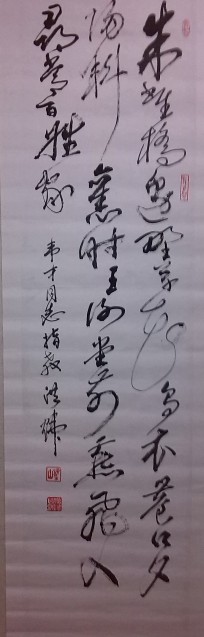 朱雀橋邊野草花烏衣巷口夕
陽斜舊時王謝堂前燕飛入
尋常百姓家
韦才同志指教